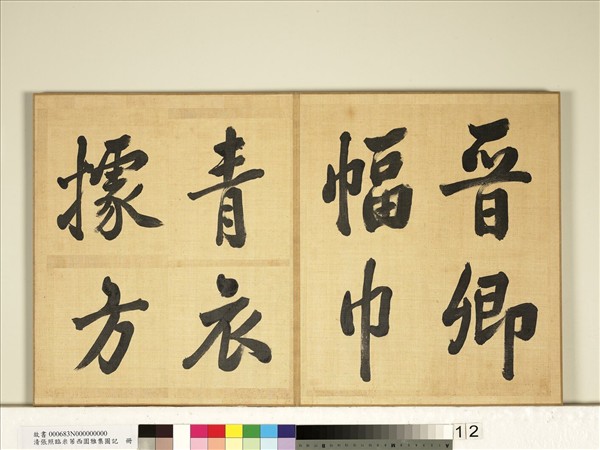 晉卿
幅巾
青衣
據方
故書 000683N000000000
清張照臨米芾西園雅集圖記 冊
12